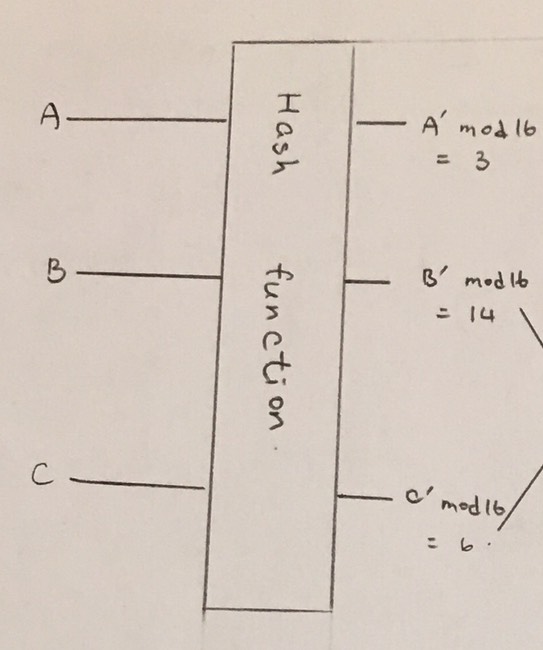 A
Hash function.
A' mod 16
= 3
B
B' mod 16
= 14
C
C' mod 16
= 6.